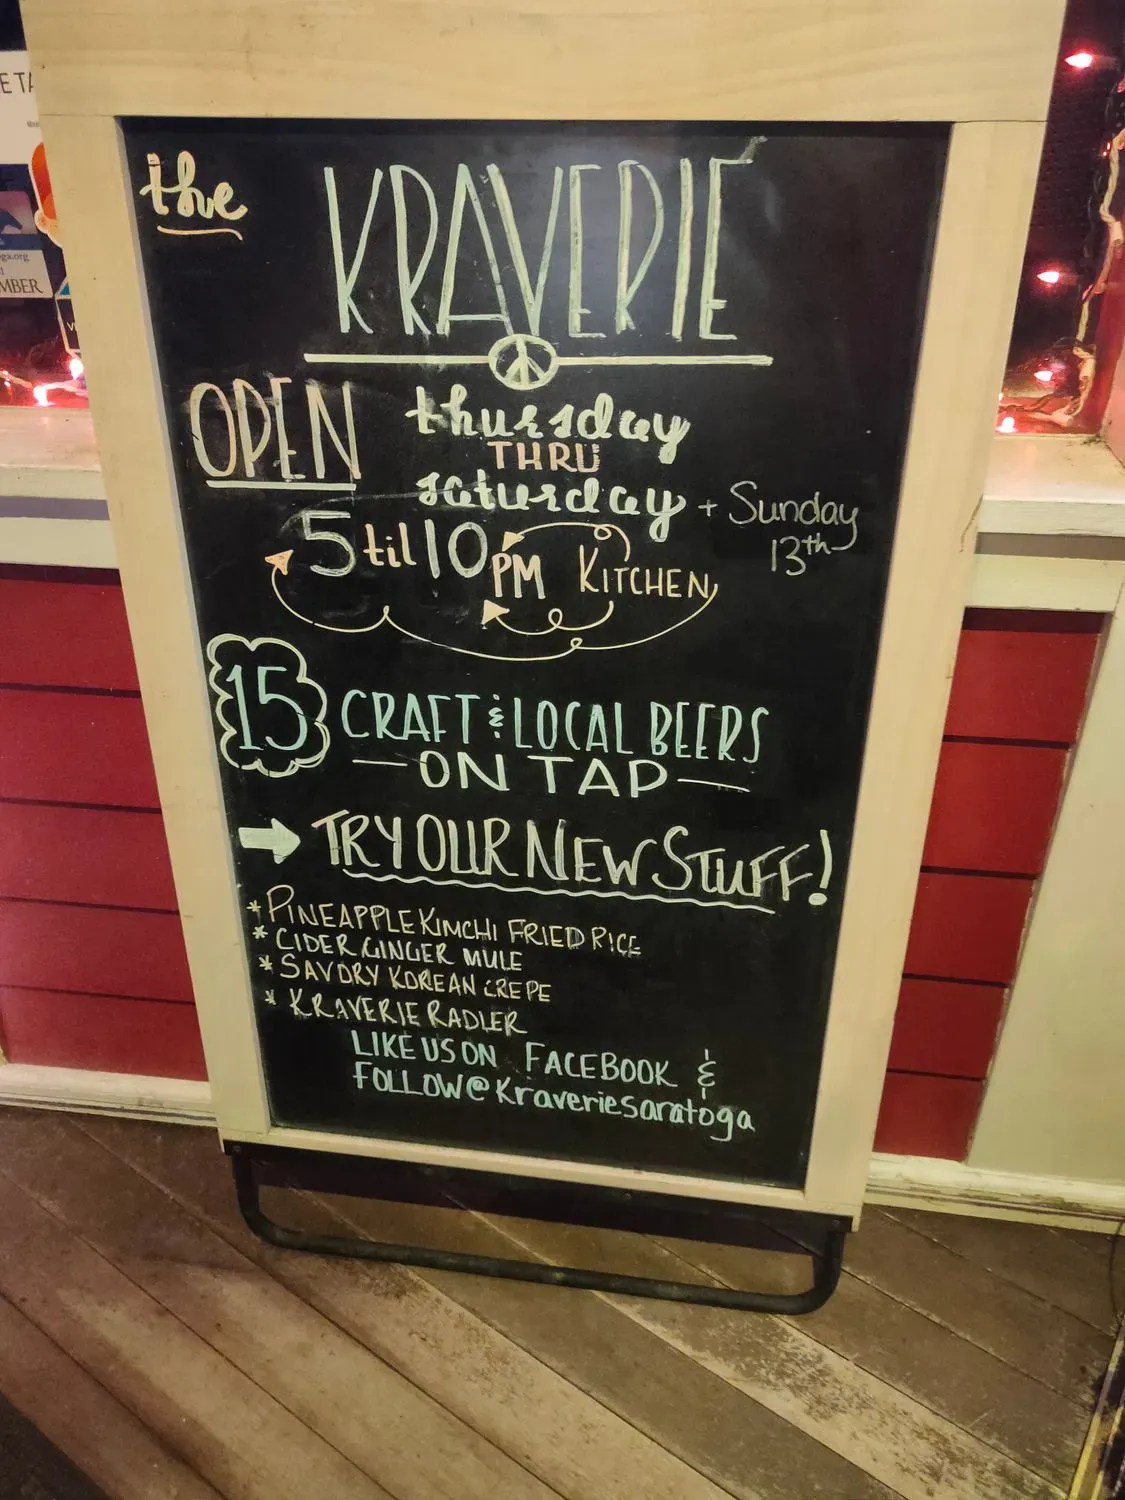 the
KRAVERIE
OPEN thursday
THRU
saturday + Sunday
13th
5 til 10 PM KITCHEN
15 CRAFT & LOCAL BEERS
— ON TAP —
TRY OUR NEW STUFF!
* PINEAPPLE KIMCHI FRIED RICE
* CIDER GINGER MULE
* SAVORY KOREAN CREPE
* KRAVERIE RADLER
LIKE US ON FACEBOOK &
FOLLOW @Kraveriesaratoga
ga.org
MBER